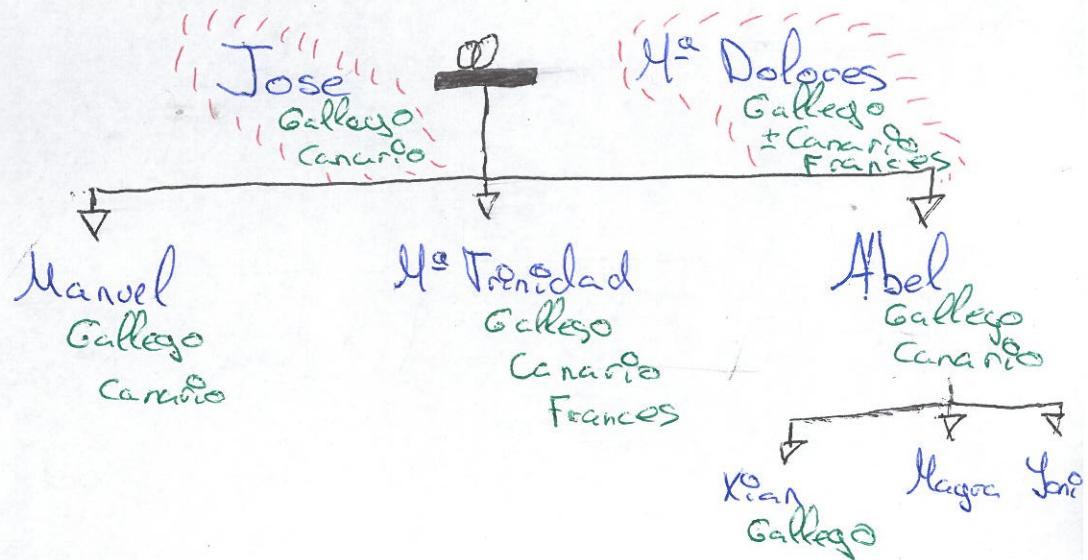 Jose
Gallego
Canario
Mª Dolores
Gallego
± Canario
Frances
Manuel
Gallego
Canario
Mª Trinidad
Gallego
Canario
Frances
Abel
Gallego
Canario
Xian
Gallego